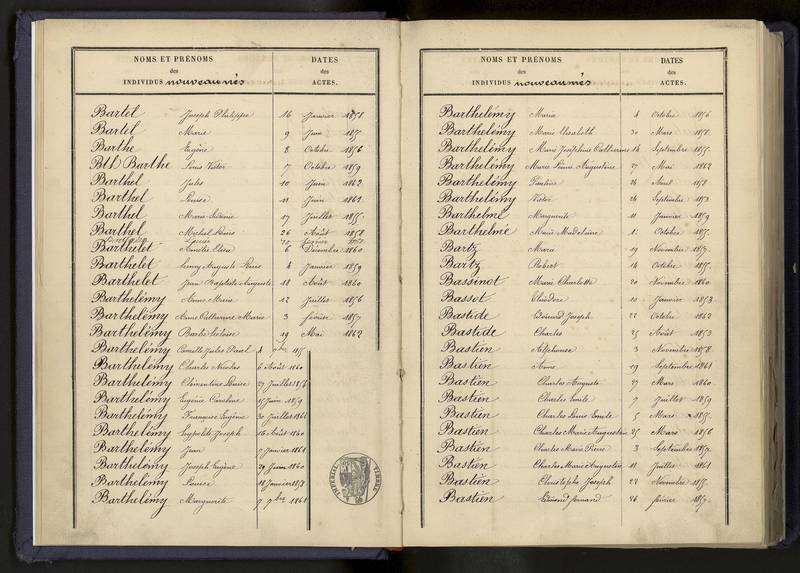 NOMS ET PRÉNOMS
des
INDIVIDUS nouveaunés
DATES
des
ACTES.
Bartel Joseph Philippe 16 Janvier 1858
Bartel Marie 9 Juin
Barthe Eugène 8 Octobre 1856
Barthe Louis Victor 7 Octobre 1859
Barthel Jules 10 Juin 1862
Barthel Louise 11 Juin 1862
Barthel Marie 17 Juillet 1855
Barthel Michel 26 Août 1858
Barthelet Amélie 6 Décembre 1860
Barthelet Henry Auguste 4 Janvier 1859
Barthelet Jean Baptiste Auguste 18 Août 1860
Barthélémy Anne Marie 12 Juillet 1856
Barthélémy Anne Catherine Marie 3 février 1857
Barthélémy Barbe 19 Mai 1862
Barthélémy Camille Jules Paul
Barthélémy Charles Nicolas 6 Août 1860
Barthélémy Clémentine Louise 27 Juillet 1856
Barthélémy Eugénie Caroline 15 Juin 1859
Barthélémy François Eugène 30 Juillet 1861
Barthélémy hyppolite Joseph 16 Août 1860
Barthélémy Jean 7 Janvier 1861
Barthélémy Joseph Eugène 29 Juin 1860
Barthélémy Louise 18 Janvier 1857
Barthélémy Marguerite 7 7bre 1861
NOMS ET PRÉNOMS
des
INDIVIDUS nouveaunés
DATES
des
ACTES.
Barthélémy Maria 4 Octobre 1856
Barthélémy Marie Elisabeth 30 Mars 1858
Barthélémy Marie Joséphine Catherine 14 Septembre 1855
Barthélémy Marie Augustine 27 Mai 1862
Barthélémy Pauline 26 Avril 1858
Barthélémy Victor 26 Septembre 1853
Barthelmé Marguerite 11 Janvier 1859
Barthelmé Marie Madeleine 1 Octobre
Bartz Marie 19 Novembre
Bartz Robert 14 Octobre
Bassinot Marie Charlotte 20 Novembre 1860
Bassot Théodore 10 Janvier 1853
Bastide Edouard Joseph 22 Octobre 1862
Bastide Charles 25 Août 1853
Bastien Alphonse 3 Novembre 1858
Bastien Anne 19 Septembre 1861
Bastien Charles Auguste 27 Mars 1860
Bastien Charles Emile 7 Juillet 1859
Bastien Charles Louis Emile 5 Mars 1855
Bastien Charles Marie Augustin 25 Mars 1856
Bastien Charles Marie Pierre 3 Septembre 1857
Bastien Charles Marie Augustin 11 Juillet 1861
Bastien Christophe Joseph 22 Novembre 1855
Bastien Edmond 26 février